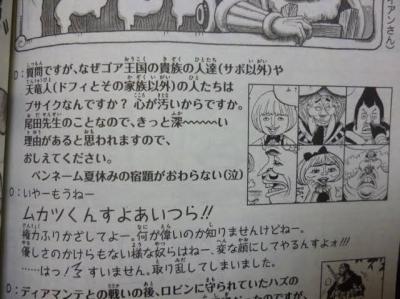 ィアンさん)
D:質問ですが、なぜゴア王国の貴族の人達(サボ以外)や
天竜人(ドフィとその家族以外)の人たちは
ブサイクなんですか?心が汚いからですか。
尾田先生のことなので、きっと深〜〜〜〜い
理由があると思われますので、
おしえてください。
ペンネーム夏休みの宿題がおわらない(泣)
O:いやーもうねー
ムカツくんすよあいつら!!
権力ふりかざしてよー。何が偉いのか知りませんけどねー。
優しさのかけらもない様な奴らはねー、変な顔にしてやるんすよォ!!!
……はっ!すいません。取り乱してしまいました。
D:ディアマンテとの戦いの後、ロビンに守られていたハズの